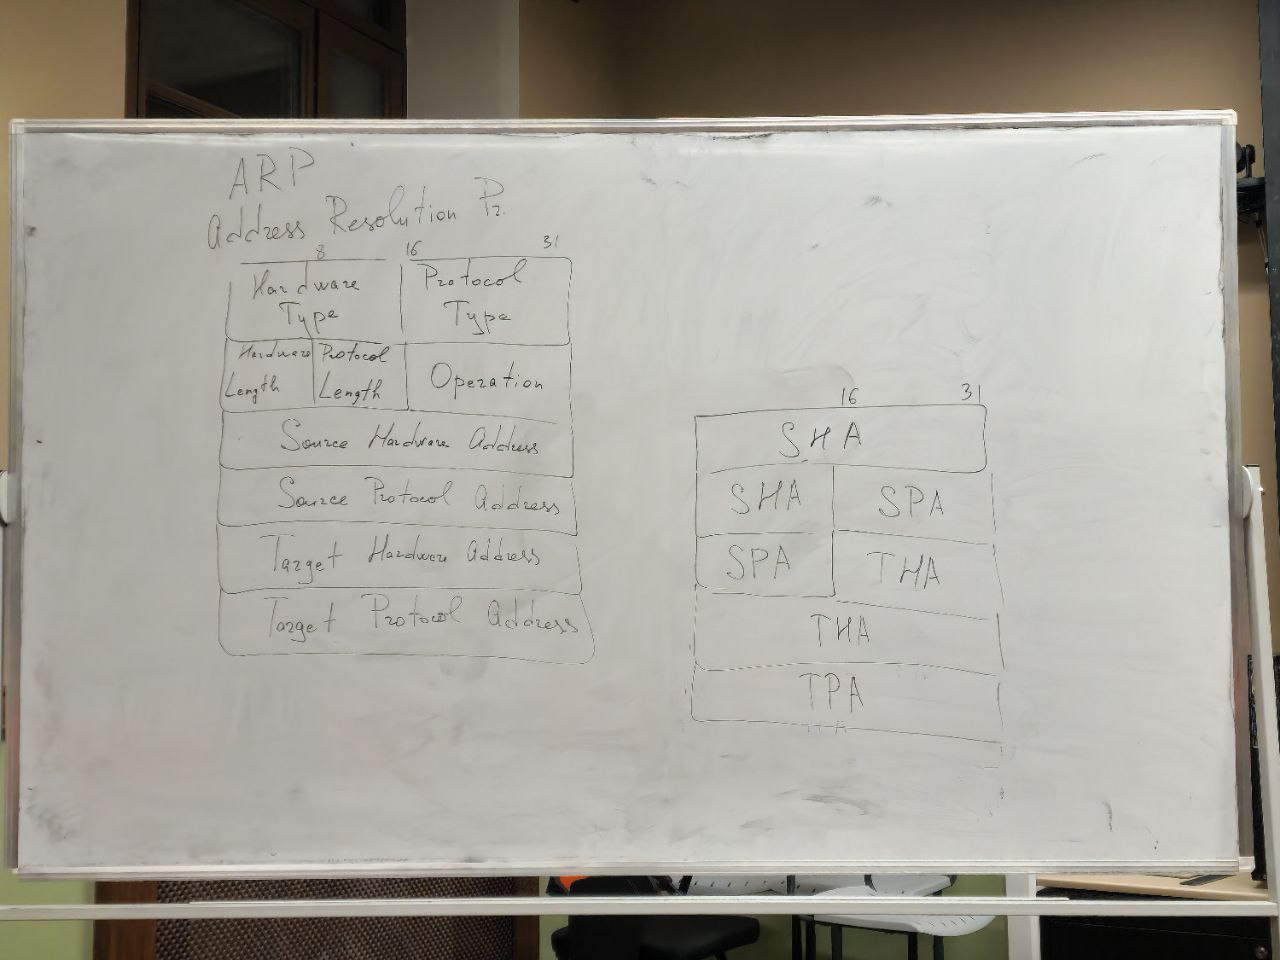 ARP
Address Resolution Pr.
8 16 31
Hardware Type
Protocol Type
Hardware Length
Protocol Length
Operation
Source Hardware Address
Source Protocol Address
Target Hardware Address
Target Protocol Address
16 31
SHA
SHA SPA
SPA THA
THA
TPA